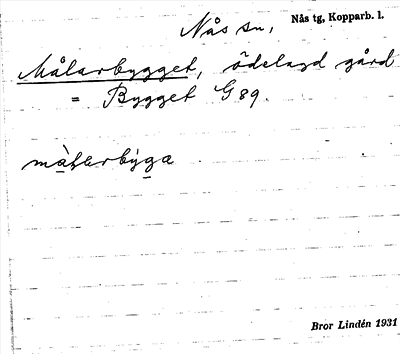 Nås sn, Nås tg, Kopparb. l.
Målarbygget, ödelagd gård
= Bygget G 89.
màtarbýga
Bror Lindén 1931